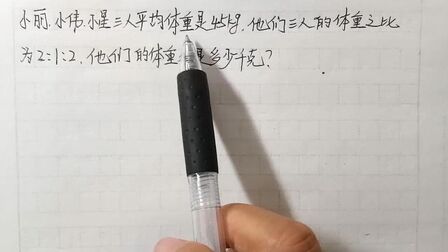 小丽.小伟.小星三人平均体重是45kg,他们三人的体重之比
为2:1:2,他们的体重是多少千克?